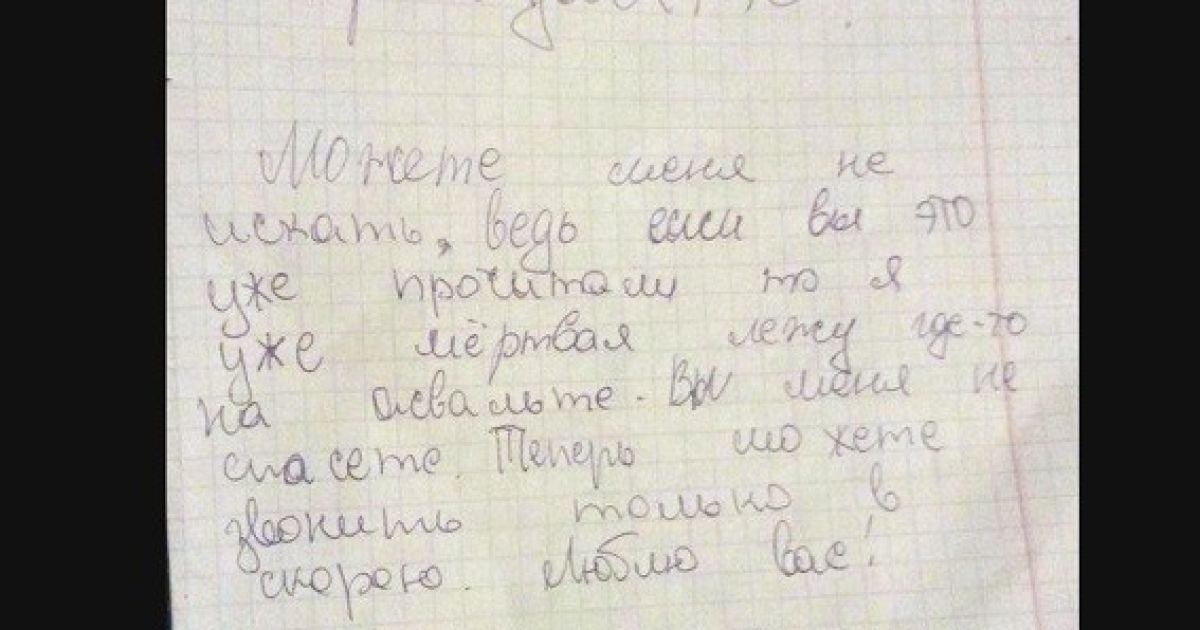 Можете меня не
искать, ведь если вы это
уже прочитали то я
уже мёртвая лежу где-то
на асвальте. Вы меня не
спасете. Теперь можете
звонить только в
скорою. Люблю вас!